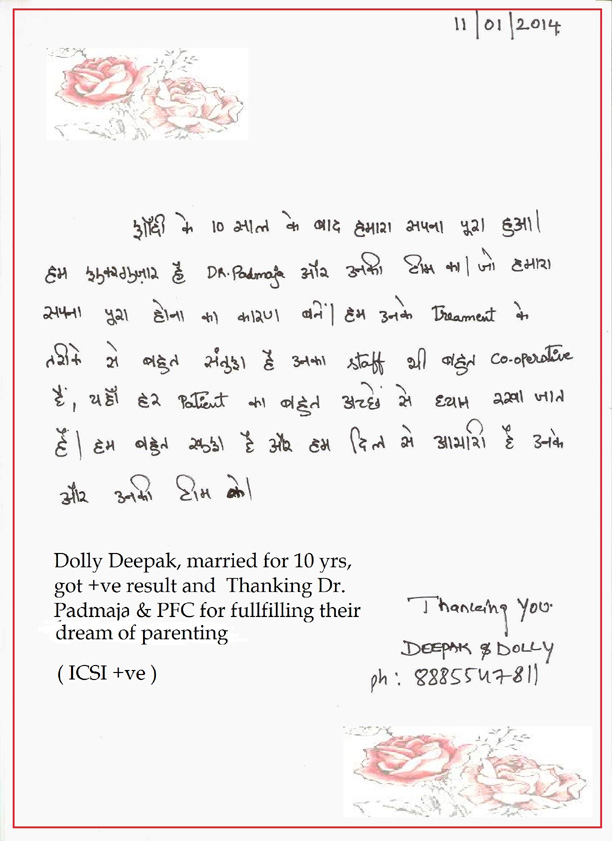 11/01/2014
शादी के 10 साल के बाद हमारा सपना पूरा हुआ|
हम शुक्रगुज़ार हैं DR. Padmaja और उनकी टीम का| जो हमारा
सपना पूरा होना का कारण बनें| हम उनके Treament के
तरीके से बहुत संतुश है उनका staff भी बहुत co-operative
हैं, यहाँ हर Patient का बहुत अच्छे से ध्यान रखा जात
हैं| हम बहुत खुश है और हम दिल से आभारी है उनके
और उनकी टीम के|
Dolly Deepak, married for 10 yrs,
got +ve result and Thanking Dr.
Padmaja & PFC for fullfilling their
dream of parenting
( ICSI +ve )
Thanking You.
DEEPAK & DOLLY
ph: 8885547811